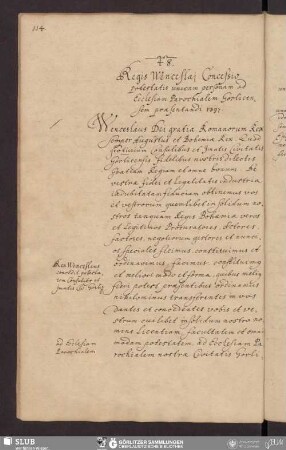 114.
78.
Regis Wenceslai Concessio
potestatis unicam personam ad
Ecclesiam Parochialem Gorlicen,
sem praesentandi 1391
Wenceslaus Dei gratia Romanorum Rex
semper Augustus et Bohemiae Rex.
Consulibus et Juratis Civitatis
Gorlicensis fidelibus nostris dilectis
Gratiam Regiam et omne bonum. De
vestra fidei et legalitatis industria
indubitatam fiduciam obtinemus vos
et vestrorum quemlibet in solidum no,
stros tanquam Regis Bohemiae veros
et Legitimos Procuratores, Actores
factores, negotiorum gestores et nunci,
os speciales facimus constituimus et
ordinavimus, facimus, constituimus
et meliori modo et forma, quibus melius
potest praesentibus ordinantes
nihilominus transferentes in vos
Dantes et concedentes vobis et ve,
strum cuilibet in solidum nostro no,
mine Licentiam, facultatem et omni
modam potestatem, ad Ecclesiam Pa,
rochialem nostrae Civitatis Gorli,
Rex Wenceslaus
concedit potesta,
tem Consulibus et
Juratis Gorlic
ad Ecclesiam
Parochialem
SLUB
Wir führen Wissen.
GÖRLITZER SAMMLUNGEN
OBERLAUSITZISCHE BIBLIOTHEK